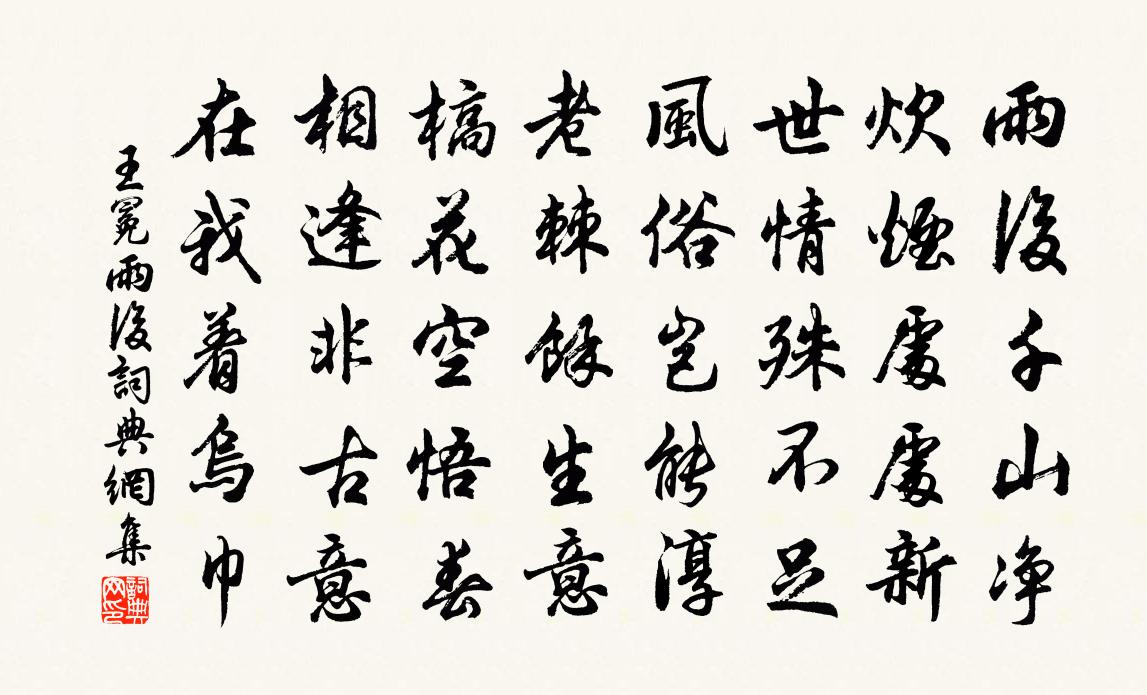 雨後千山净
炊煙處處新
世情殊不足
風俗豈能淳
老棘餘生意
槁花空悟春
相逢非古意
在我着烏巾
王冕雨後詞典網集
詞典網印